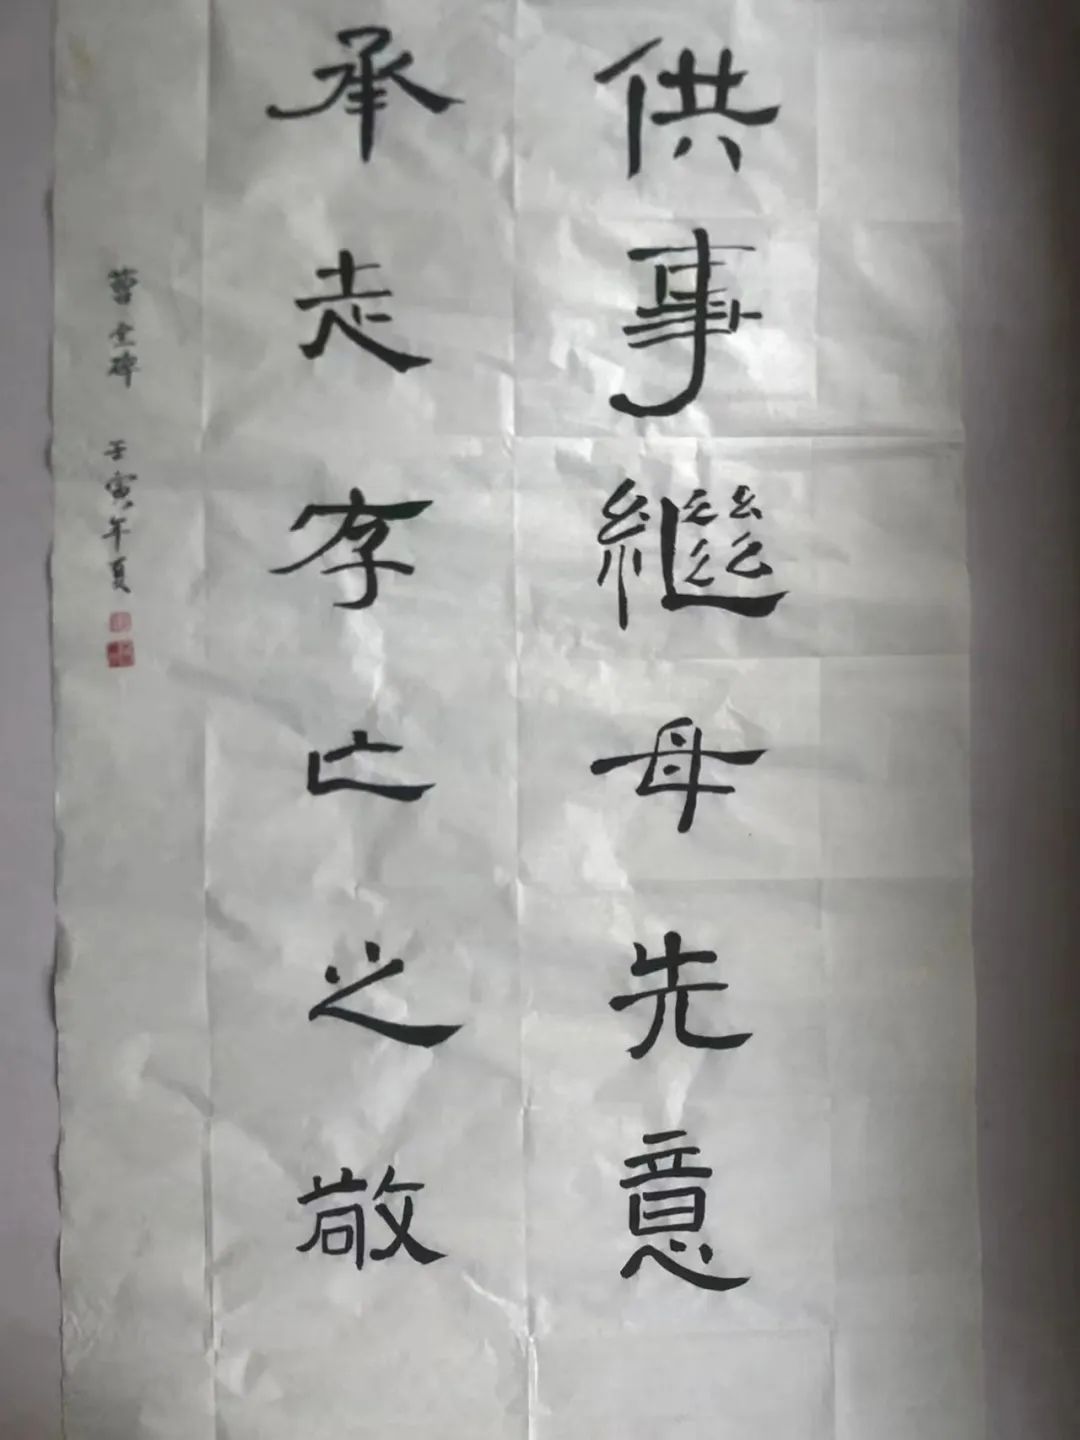 供事繼母先意
承志存亡之敬
曹全碑 壬寅年夏